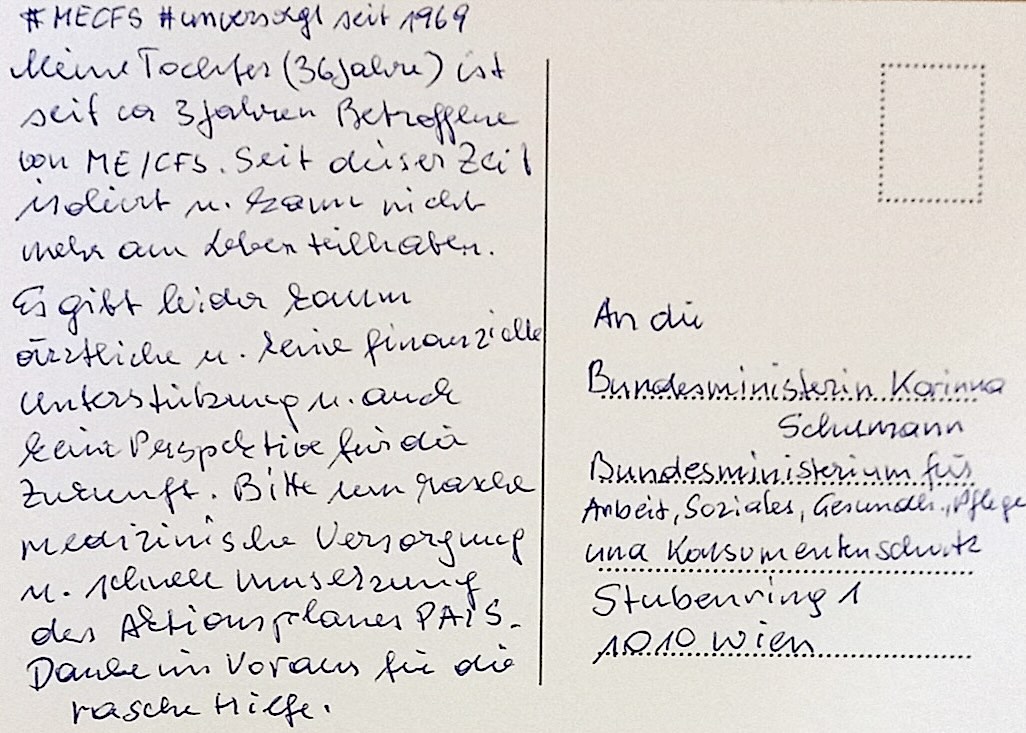 #MECFS #unversorgt seit 1969
Meine Tochter (36 Jahre) ist
seit ca 3 Jahren Betroffene
von ME/CFS. Seit dieser Zeit
isoliert u. kann nicht
mehr am Leben teilhaben.
Es gibt leider kaum
ärztliche u. keine finanzielle
Unterstützung u. auch
keine Perspektive für die
Zukunft. Bitte um rasche
medizinische Versorgung
u. schnelle Umsetzung
des Aktionsplanes PAIS.
Danke im Voraus für die
rasche Hilfe.
An die
Bundesministerin Korinna
Schumann
Bundesministerium für
Arbeit, Soziales, Gesundh., Pflege
und Konsumentenschutz
Stubenring 1
1010 Wien